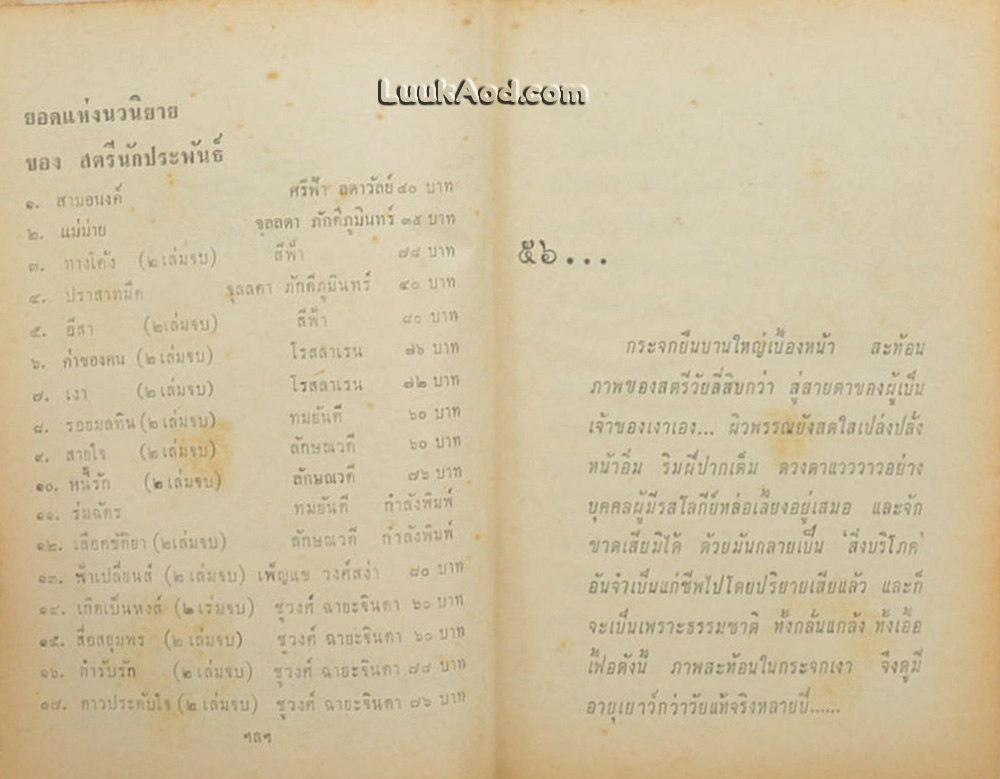 LuukAod.com
ยอดแห่งนวนิยาย
ของ สตรีนักประพันธ์
๑. สามอนงค์ ศรีฟ้า ลดาวัลย์ ๔๐ บาท
๒. แม่ม่าย จุลลดา ภักดีภูมินทร์ ๓๕ บาท
๓. ทางโค้ง (๒ เล่มจบ) สีฟ้า ๗๘ บาท
๔. ปราสาทมืด จุลลดา ภักดีภูมินทร์ ๔๐ บาท
๕. อีสา (๒เล่มจบ) สีฟ้า ๘๐ บาท
๖. ค่าของคน (๒ เล่มจบ) โรสลาเรน ๗๖ บาท
๗. เงา (๒ เล่มจบ) โรสลาเรน ๗๒ บาท
๘. รอยมลทิน (๒ เล่มจบ) ทมยันตี ๖๐ บาท
๙. สายใจ (๒ เล่มจบ) ลักษณวดี ๖๐ บาท
๑๐. หนี้รัก (๒ เล่มจบ) ลักษณวดี ๗๖ บาท
๑๑. ร่มฉัตร ทมยันตี กำลังพิมพ์
๑๒. เลือดขัติยา (๒เล่มจบ) ลักษณวดี กำลังพิมพ์
๑๓. ฟ้าเปลี่ยนสี (๒ เล่มจบ) เพ็ญแข วงศ์สง่า ๘๐ บาท
๑๔. เกิดเป็นหงส์ (๒ เร่มจบ) ชูวงศ์ ฉายะจินดา ๖๐ บาท
๑๕. สื่อสยุมพร (๒ เล่มจบ) ชูวงศ์ ฉายะจินดา ๖๐ บาท
๑๖. ตำรับรัก (๒ เล่มจบ) ชูวงศ์ ฉายะจินดา ๗๘ บาท
๑๗. ดาวประดับใจ (๒ เล่มจบ) ชูวงศ์ ฉายะจินดา ๗๖ บาท
ฯลฯ
๕๖...
กระจกยืนบานใหญ่เบื้องหน้า สะท้อน
ภาพของสตรีวัยสี่สิบกว่า สู่สายตาของผู้เป็น
เจ้าของเงาเอง... ผิวพรรณยังสดใสเปล่งปลั่ง
หน้าอิ่ม ริมฝีปากเต็ม ดวงตาแวววาวอย่าง
บุคคลผู้มีรสโลกีย์หล่อเลี้ยงอยู่เสมอ และจัก
ขาดเสียมิได้ ด้วยมันกลายเป็น 'สิ่งบริโภค'
อันจำเป็นแก่ชีพไปโดยปริยายเสียแล้ว และก็
จะเป็นเพราะธรรมชาติ ทั้งกลั่นแกล้ง ทั้งเอื้อ
เฟื้อดังนี้ ภาพสะท้อนในกระจกเงา จึงดูมี
อายุเยาว์กว่าวัยแท้จริงหลายปี......